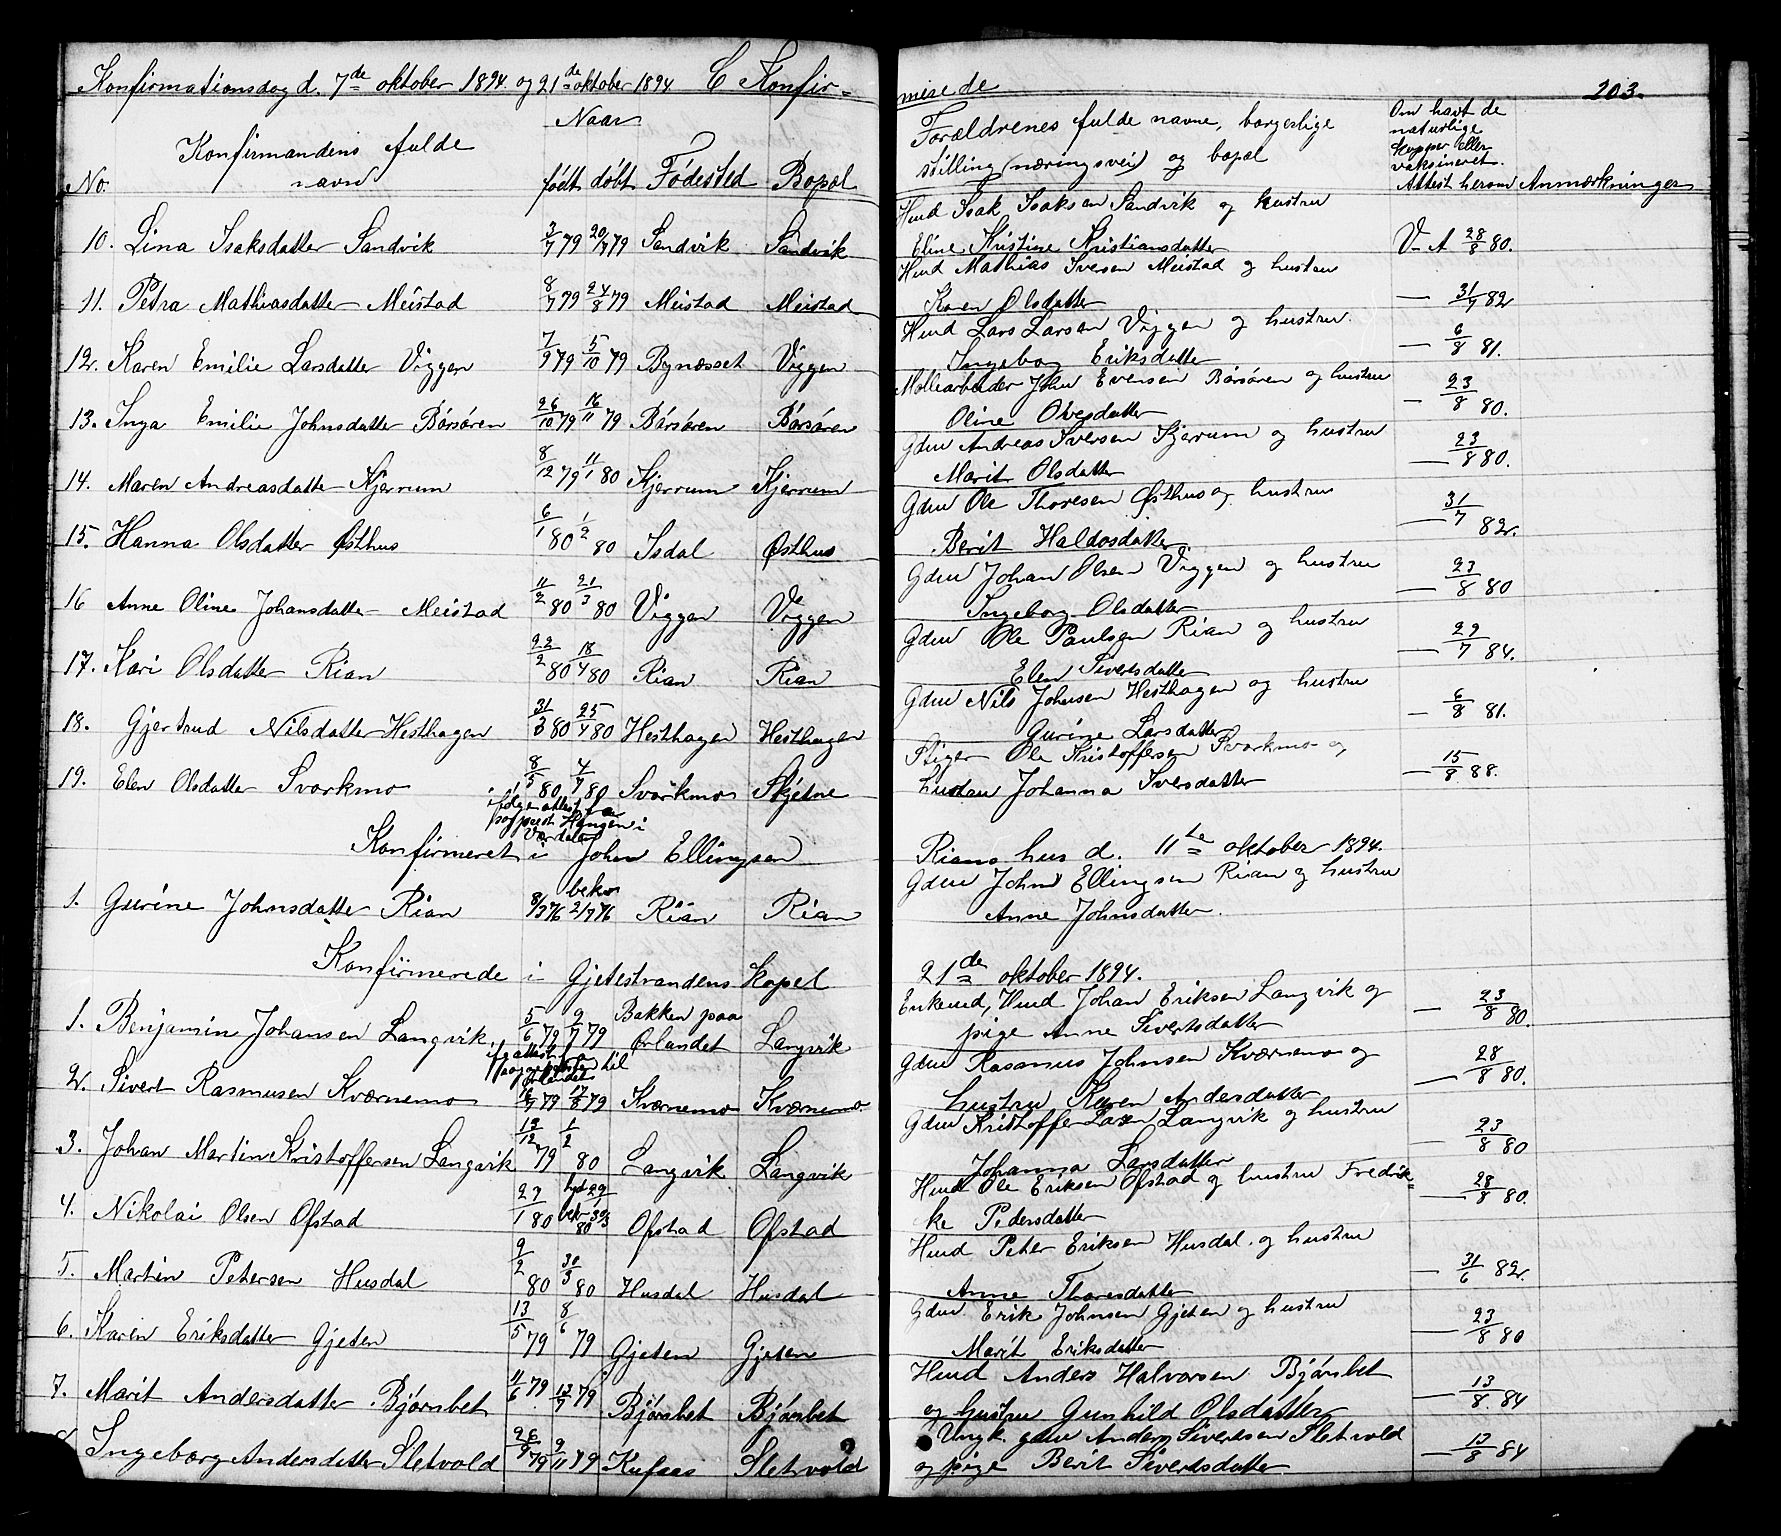 Konfirmationsdag d. 7de oktober 1894 og 21de oktober 1894 C Konfir-
Naar
No. Konfirmandens fulde navn født døbt Fødested Bopæl
10. Lina Isaksdatter Sandvik 3/7 79 20/7 79 Sandvik Sandvik
11. Petra Mathiasdatter Meistad 8/7 79 24/8 79 Meistad Meistad
12. Karen Emilie Larsdatter Viggen 7/9 79 5/10 79 Bynæsset Viggen
13. Inga Emilie Johnsdatter Børsøren 26/10 79 16/11 79 Børsøren Børsøren
14. Maren Andreasdatter Kjerrum 8/12 79 11/1 80 Kjerrum Kjerrum
15. Hanna Olsdatter Østhus 6/1 80 1/2 80 Isdal Østhus
16 Anne Oline Johansdatter Meistad 11/2 80 21/3 80 Viggen Viggen
17. Kari Olsdatter Rian 22/2 80 18/4 80 Rian Rian
18. Gjertrud Nilsdatter Hesthagen 31/3 80 25/4 80 Hesthagen Hesthagen
19. Elen Olsdatter Svorkmo 8/5 80 4/7 80 Svorkmo Skjetne
ifølge attest fra
sogneprest Haugen i
Værdalen
Konfirmeret i John Ellingsen
1. Gurine Johnsdatter Rian 8/3 76 bekr 2/7 76 Rian Rian
Konfirmerede i Gjetestrandens Kapel
1. Benjamin Johansen Langvik 5/6 79 9/7 79 Bakken paa Ørlandet Langvik
attest
til
Ørlandet
2. Sivert Rasmusen Kværnemo 16/7 79 17/8 79 Kværnemo Kværnemo
3. Johan Martin Kristoffersen Langvik 12/12 79 1/2 80 Langvik Langvik
4. Nikolai Olsen Ofstad 27/1 80 hjd 29/1 bekr 30/3 80 Ofstad Ofstad
5. Martin Petersen Husdal 9/2 80 30/3 80 Husdal Husdal
6. Karen Eriksdatter Gjeten 13/5 79 8/6 79 Gjeten Gjeten
7. Marit Andersdatter Bjørnbet 11/6 79 13/7 79 Bjørnbet Bjørnbet
8 Ingeborg Andersdatter Sletvold 26/9 79 9/11 79 Kufaas Sletvold
merede 203.
Forældrenes fulde navne, borgerlige
stilling (næringsvei) og bopæl
Om havt de
naturlige
kopper eller
vaksineret.
Attest herom Anmærkninger
Husd Isak Isaksen Sandvik og hustru
Eline Kristine Kristiansdatter V. A 28/8 80.
Husd Mathias Iversen Meistad og hustru
Karen Olsdatter — 31/7 82
Husd Lars Larsen Viggen og hustru
Ingeborg Eriksdatter — 6/8 81.
Møllearbeider John Evensen Børsøren og hustru
Oline Olvesdatter — 23/8 80.
Gdm Andreas Iversen Kjerrum og hustru
Marit Olsdatter — 23/8 80.
Gdm Ole Thoresen Østhus og hustru
Berit Haldosdatter — 31/7 82.
Gdm Johan Olsen Viggen og hustru
Ingeborg Olsdatter — 23/8 80
Gdm Ole Paulsen Rian og hustru
Elen Sivertsdatter — 29/7 84.
Gdm Nils Johnsen Hesthagen og hustru
Gurine Larsdatter — 6/8 81.
Stiger Ole Kristoffersen Svorkmo og
hustru Johanna Iversdatter — 15/8 88.
Rians hus d. 11te oktober 1894.
Gdm John Ellingsen Rian og hustru
Anne Johnsdatter.
21de oktober 1894.
Enkemd, Husd Johan Eriksen Langvik og
pige Anne Sivertsdatter — 23/8 80.
Gdm Rasmus Johnsen Kværnemo og
hustru Karen Andersdatter — 28/8 80.
Gdm Kristoffer Larsen Langvik og hustru
Johanna Larsdatter — 23/8 80
Husd Ole Eriksen Ofstad og hustru Fredrik=
ke Pedersdatter — 28/8 80.
Husd Peter Eriksen Husdal og hustru
Anne Thoresdatter — 31/6 82.
Gdm Erik Johnsen Gjeten og hustru
Marit Eriksdatter — 23/8 80
Husd Anders Halvorsen Bjørnbet
og hustru Gunhild Olsdatter — 13/8 84
Ungk. gdm Anders Sivertsen Sletvold
og pige Berit Sivertsdatter — 13/8 84